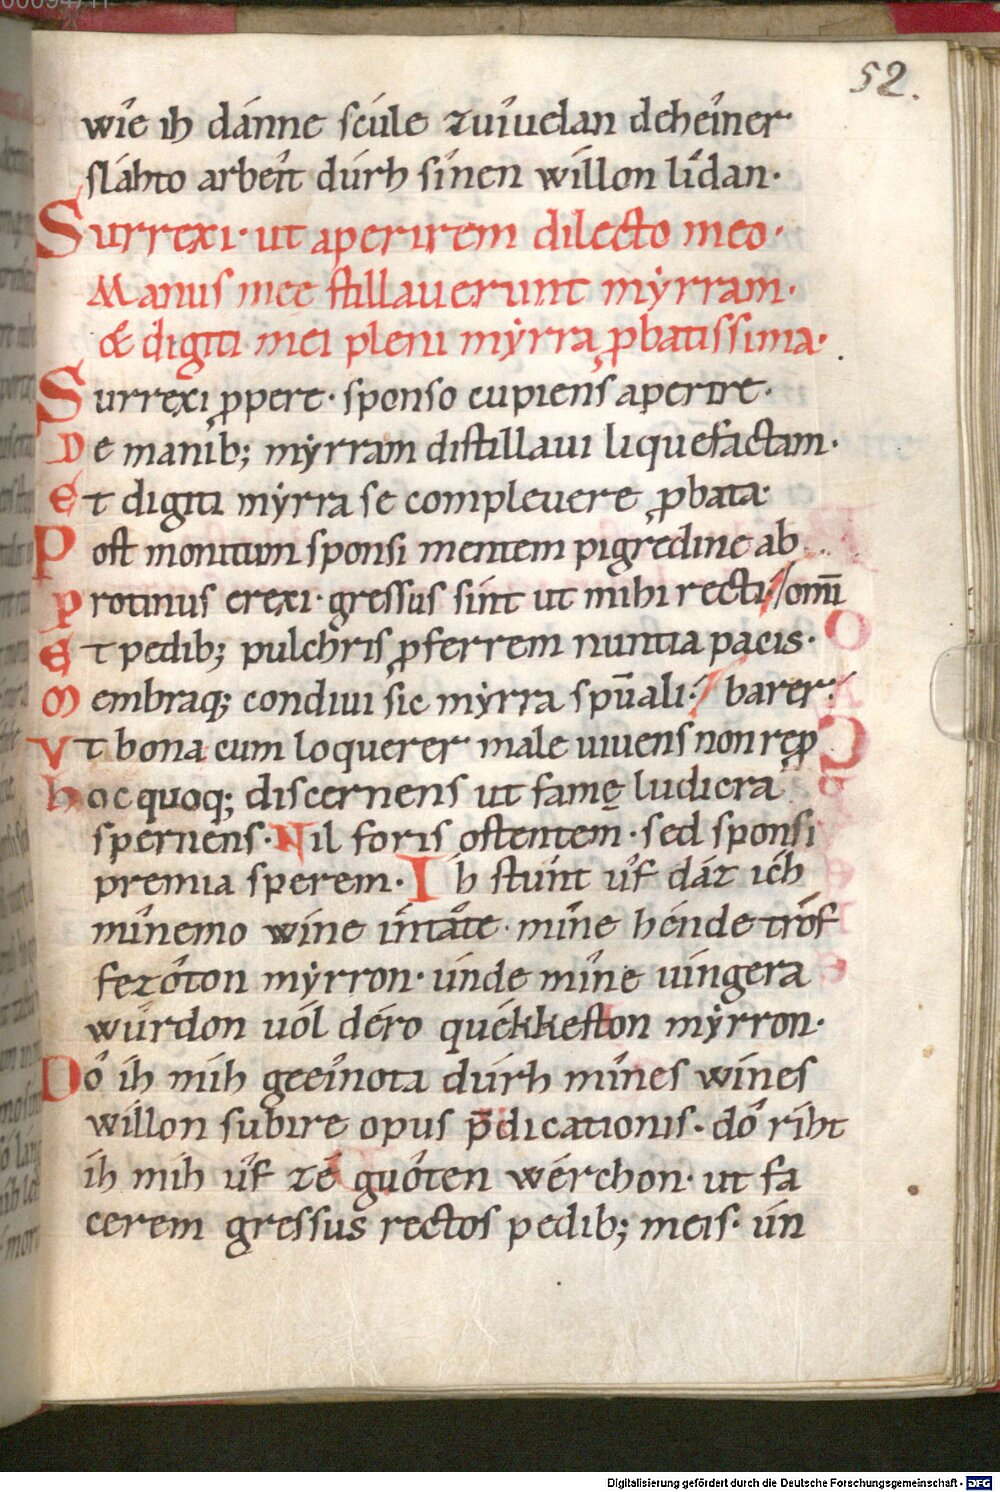 52.
wîe ih dánne scúle zuîuelan dehéiner
sláhto arbéit dúrh sînen willon lîdan·
Surrexi· ut aperirem dilecto meo·
Manus mee stillauerunt mẏrram·
& digiti mei pleni mẏrra ꝓbatissima·
Surrexi ꝓpere· sponso cupiens aperire·
De manib; mẏrram distillaui liquefactam·
Et digiti mẏrra se compleuere ꝓbata·
Post monitum sponsi mentem pigredine ab
Protinus erexi· gressus sint ut mihi recti·/omī
Et pedib; pulchris ꝓferrem nuntia pacis·
Membraq; condiui sic mẏrra spūali·/ barer·/
Vt bona cum loquerer male uiuens non reꝓ
hoc quoq; discernens ut famę ludicra
spernens· Nil foris ostentem· sed sponsi
premia sperem· Ih stûnt ûf dáz ích
mînemo wíne întâte· mîne hénde trôf
fezôton mẏrron· únde mîne uíngera
wúrdon uól déro quékkeston mẏrron·
Dô ih mih geéinota dúrh mînes wínes
willon subire opus p̄dicationis· dô riht
íh mih ûf zé guôten wérchon· ut fa
cerem gressus rectos pedib; meis· ún
Digitalisierung gefördert durch die Deutsche Forschungsgemeinschaft - DFG